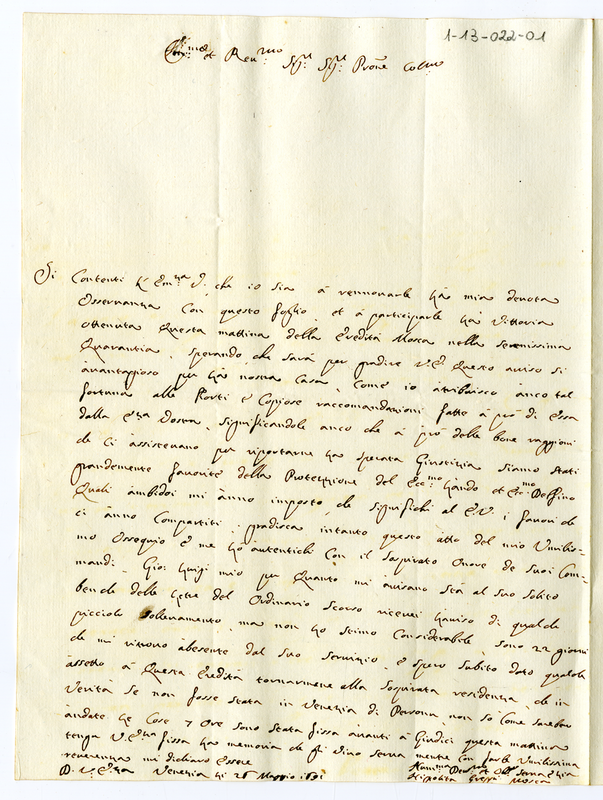 1-13-022-01
Em.mo et Rev.mo Sig.r Sig.r Prone Col.mo
Si Contenti l'Em.za V. che io sia à rennovarle la mia devota
Osservanza Con questo foglio, et à participarle la Vittoria
Ottenuta questa mattina della Eredità Mosca nella Serenissima
Quarantia, sperando che sarà per gradire V.E. questo aviso sì
avantaggioso per la nostra Casa, Come io atribuisco anco tal
fortuna alle Forti e Copiose raccomandazioni fatte à prò di Essa
dalla E.za Vostra, significandole anco che à prò delle bone raggioni
che Ci assistevano per riportarne la sperata Giustizia siamo stati
grandemente favorite della Protezzione del Ecc.mo Lando et Ecc.mo Delfino
Quali ambidoi mi ànno imposto, che significhi al E.V. i favori che
ci ànno Compartiti, gradisca intanto questo atto del mio Umilis-
mo Ossequio e me lo autentichi Con il sospirato Onore de suoi Com-
mandi. Gio: Luigi mio per quanto mi avisano stà al suo solito
benche delle letre del Ordinario scorso ricevei l'aviso di qualche
picciolo sollevamento, ma non lo stimo Considerabile, sono 22 giorni
che mi ritrovo absente dal suo servizio, e spero subito dato qualche
assetto à questa Eredità tornarmene alla sospirata residenza, che in
Verità se non fosse stata in Venezia di Persona, non sò Come sarebbero
andate le Cose, 7 Ore sono stata fissa avanti à Giudici questa mattina
tenga V.E.za fissa la memoria de gl'
reverenza mi dichiaro Essere
D. V. E.za Venezia li 26 Maggio
Hipolita Grassi Mosca